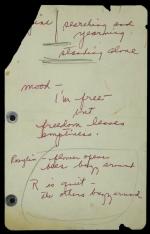 searching and
yearning
standing alone
mood -
I'm free
but
freedom losses
emptiness.
- flower opens
bees buzz around
R is quiet -
the others buzz around